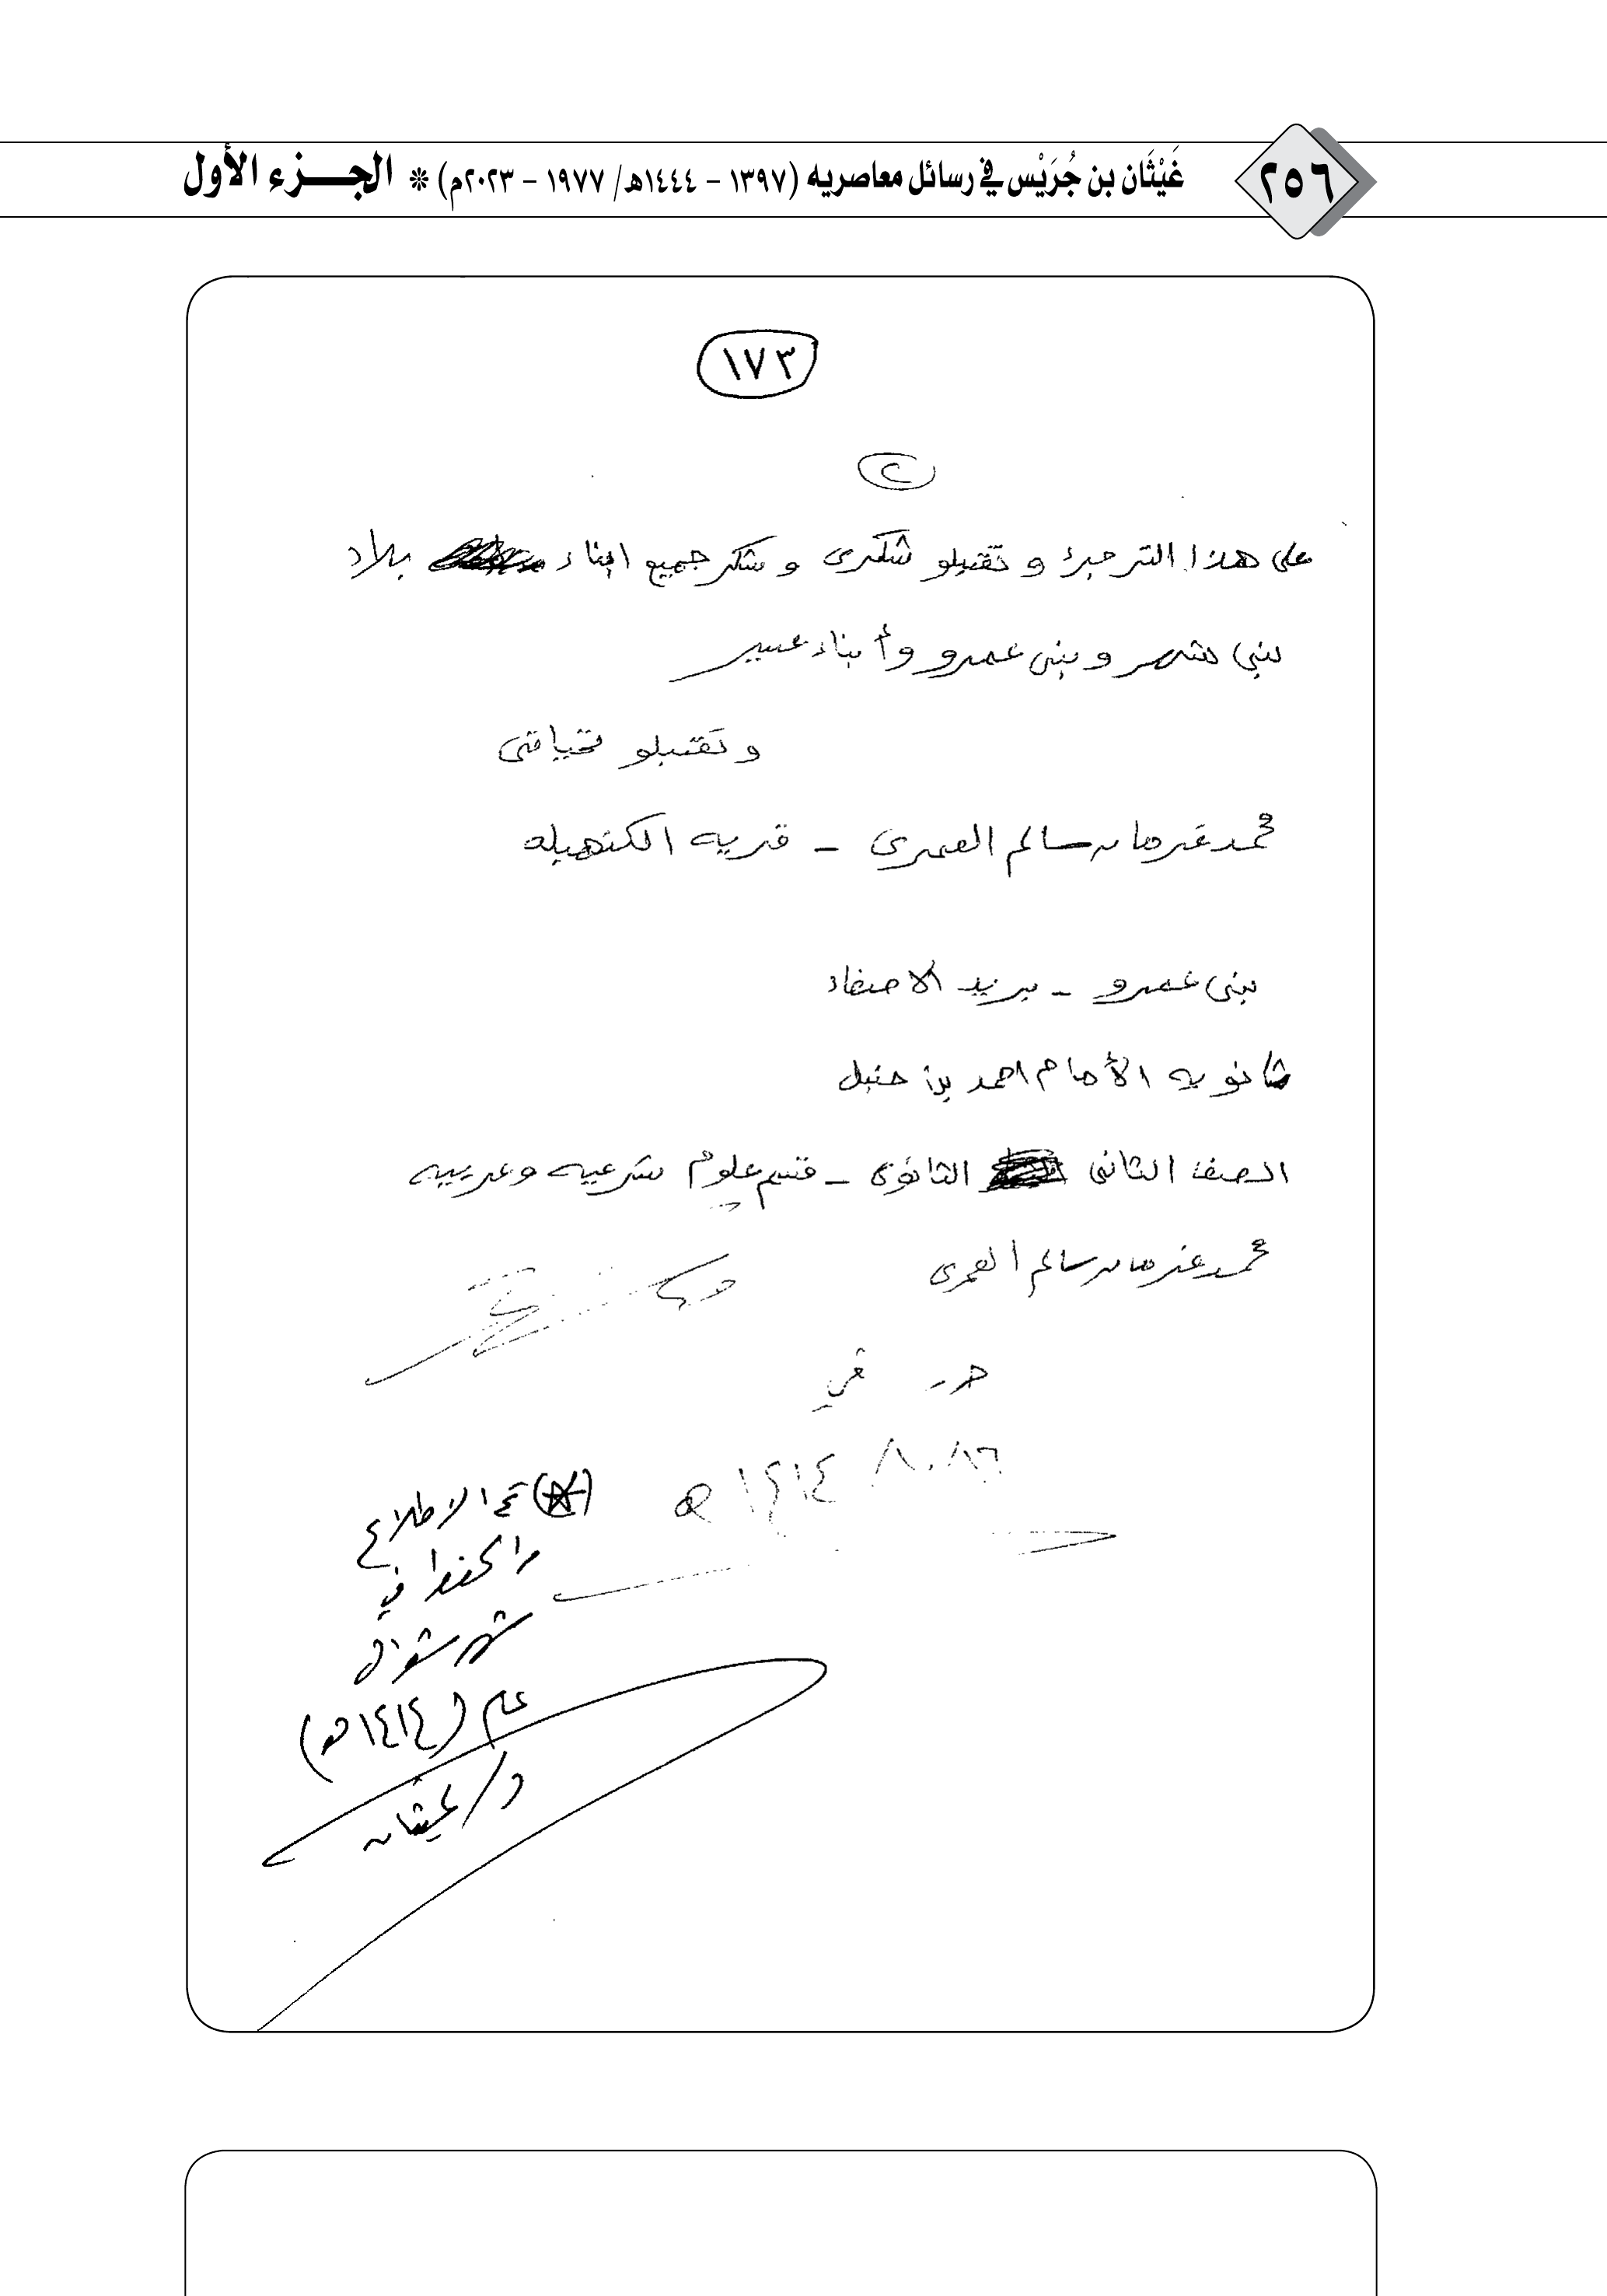 ٢٥٦
غَيْثَان بن جُرَيْس في رسائل معاصريه (١٣٩٧ - ١٤٤٤هـ/ ١٩٧٧ - ٢٠٢٣م) * الجـــزء الأول
١٧٣
٢
على هذا الترحيب وتقبلو شكرى وشكر جميع ابناء بلاد
بني شهر وبني عمرو وأبناء عسير
وتقبلو تحياتى
محمد غرمان سالم العمرى - قريه الكنهبله
بني عمرو - بريد الاصفاء
ثانويه الأمام احمد بن حنبل
الصف الثانى الثانوى - قسم علوم شرعيه وعربيه
محمد غرمان سالم العمرى
حرر في
١٤١٤ هـ
(*) تم الاطلاع
والحفظ في
شهر شوال
عام (١٤١٤هـ)
د/ غيثان